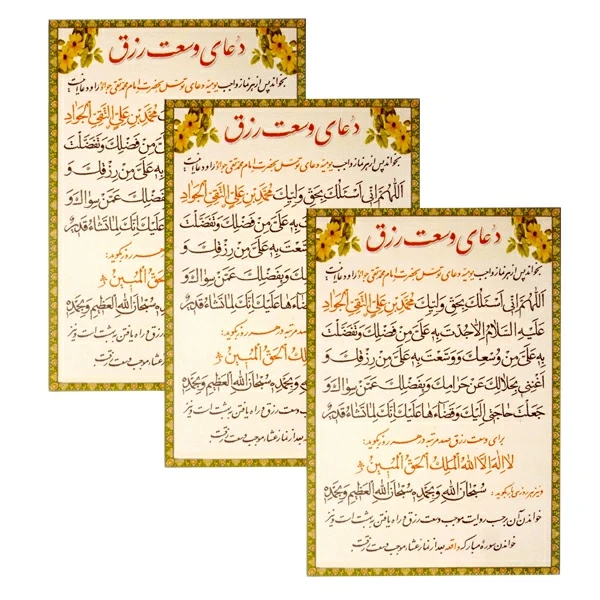 دعای وسعت رزق
بخواند پس از هر نماز واجب یومیه دعای توسل بحضرت امام محمد تقی جواد را و دعا اینست
اَللّهُمَّ اِنّی اَسْئَلُكَ بِحَقِّ وَلِیِّكَ مُحَمَّدِ بْنِ عَلِیٍّ التَّقِیِّ الْجَوادِ
عَلَیْهِ السَّلامُ اِلّا جُدْتَ بِهِ عَلَیَّ مِنْ فَضْلِكَ وَ تَفَضَّلْتَ
بِهِ عَلَیَّ مِنْ وُسْعِكَ وَ وَسَّعْتَ بِهِ عَلَیَّ مِنْ رِزْقِكَ وَ
اَغْنِنی بِحَلالِكَ عَنْ حَرامِكَ وَ بِفَضْلِكَ عَمَّنْ سِواكَ وَ
جَعَلْتَ حاجَتی اِلَیْكَ وَ قَضاءَها عَلَیْكَ اِنَّكَ لِما تَشاءُ قَدیرٌ
برای وسعت رزق صد مرتبه در هر روز بگوید:
لا اِلهَ اِلَّا اللهُ الْمَلِكُ الْحَقُّ الْمُبینُ
و نیز هر روز سی بار بگوید: سُبْحانَ اللهِ وَ بِحَمْدِهِ سُبْحانَ اللهِ الْعَظیمِ وَ بِحَمْدِهِ
خواندن آن بر حسب روایت موجب وسعت رزق و راه یافتن ببهشت است و نیز
خواندن سورهٔ مبارکه واقعه بعد از نماز عشاء موجب وسعت رزقست